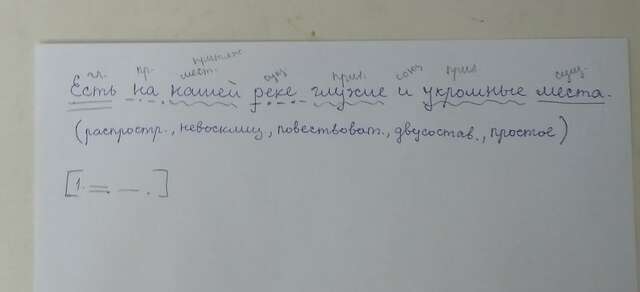 притяж.
гл. пр. мест. сущ. прил. союз прил. сущ.
Есть на нашей реке глухие и укромные места.
(распростр., невосклиц., повествоват., двусостав., простое)
[1. = — .]